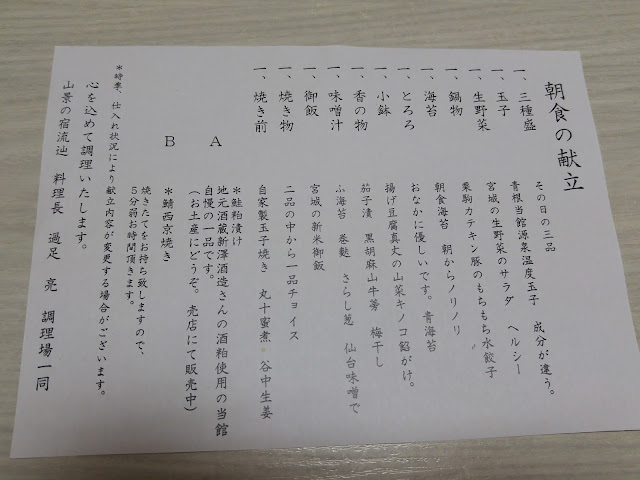 朝食の献立
一、三種盛 その日の三品
一、玉子 青根当館源泉温度玉子 成分が違う。
一、生野菜 宮城の生野菜のサラダ ヘルシー
一、鍋物 栗駒カテキン豚のもちもち水餃子
一、海苔 朝食海苔 朝からノリノリ
一、とろろ おなかに優しいです。青海苔
一、小鉢 揚げ豆腐真丈の山菜キノコ餡がけ。
一、香の物 茄子漬 黒胡麻山牛蒡 梅干し
一、味噌汁 ふ海苔 巻麩 さらし葱 仙台味噌で
一、御飯 宮城の新米御飯
一、焼き物 二品の中から一品チョイス
一、焼き前 自家製玉子焼き 丸十蜜煮 谷中生姜
A *鮭粕漬け
地元酒蔵新澤酒造さんの酒粕使用の当館
自慢の一品です。
(お土産にどうぞ。 売店にて販売中)
B *鯖西京焼き
焼きたてをお持ち致しますので、
5分弱お時間頂きます。
*時季、仕入れ状況により献立内容が変更する場合がございます。
心を込めて調理いたします。
山景の宿流辿 料理長 過足 亮 調理場一同